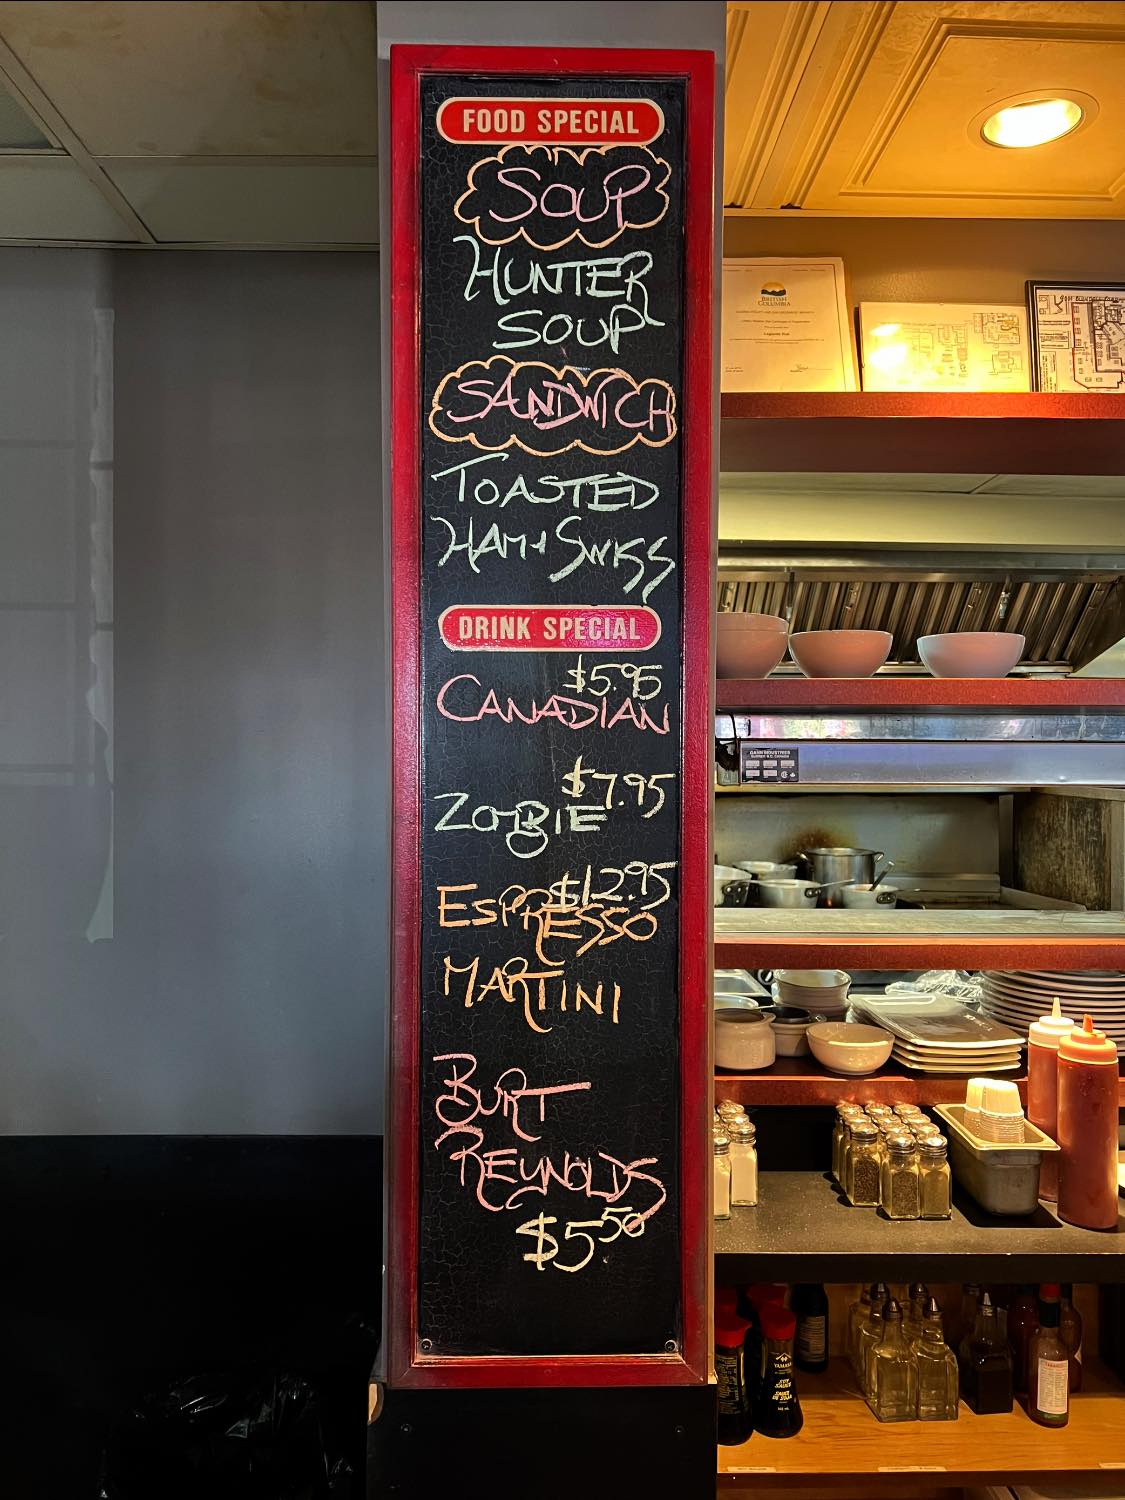 FOOD SPECIAL
SOUP
HUNTER
SOUP
SANDWICH
TOASTED
HAM + SWISS
DRINK SPECIAL
$5.95
CANADIAN
$7.95
ZOMBIE
$12.95
ESPRESSO
MARTINI
BURT
REYNOLDS
$5.50
BRITISH
COLUMBIA